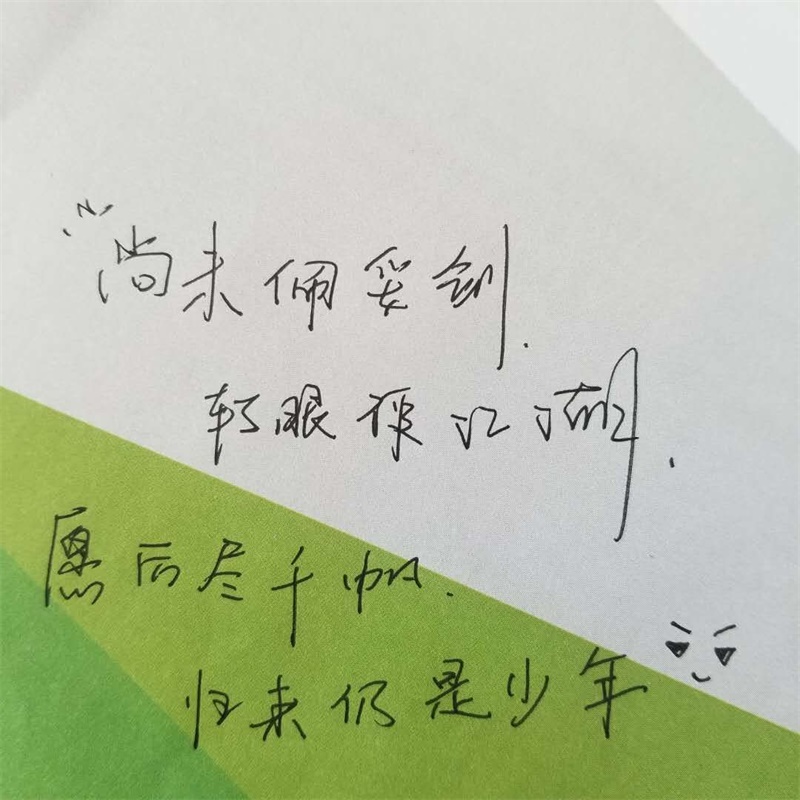 尚未佩妥剑.
转眼便江湖.
愿后尽千帆.
归来仍是少年